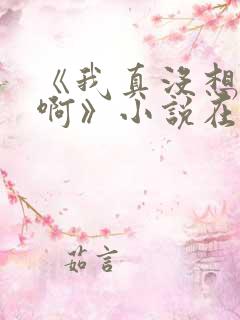 《我真没想
啊》小说在
茹言